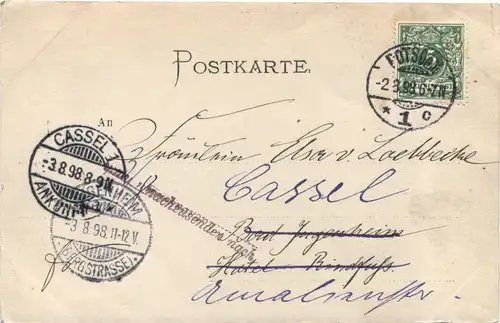 POSTKARTE.
POTSDAM
-2.8.98.6-7N.
* 1 c
An
Fräulein Elsa v. Loebbecke
CASSEL 1
-3.8.98.8-9N.
ANKUNFT
Cassel
nach
JUGENHEIM
-3 8.98.11-12V.
(BERGSTRASSE).
Bad Jugenheim
Hôtel Rindfuss.
Amalienstr.